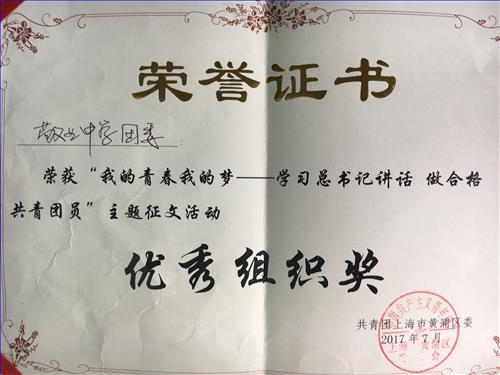 荣誉证书
敬业中学团委:
荣获“我的青春我的梦——学习总书记讲话 做合格
共青团员”主题征文活动
优秀组织奖
共青团上海市黄浦区委
2017年7月